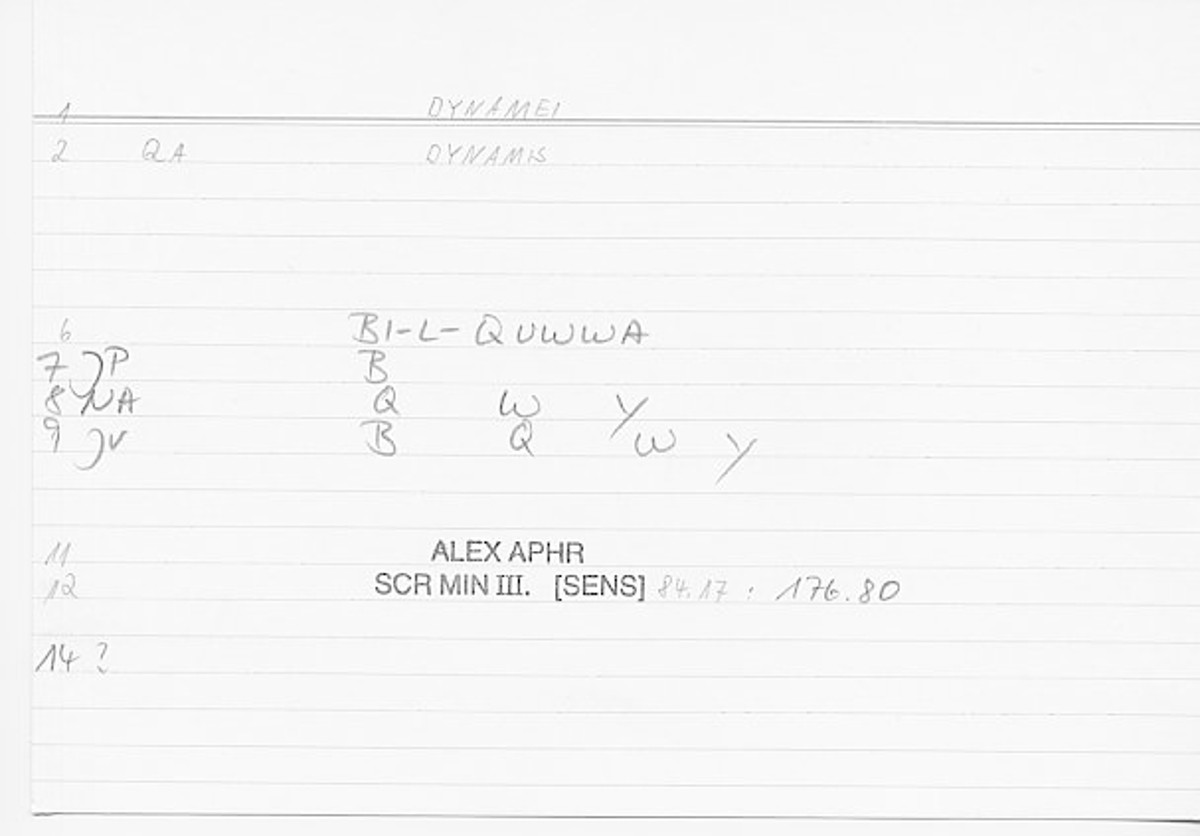 1 DYNAMEI
2 QA DYNAMIS
6 BI-L-QUWWA
7 )P B
8 NA Q W Y
9 )V B Q W Y
11 ALEX APHR
12 SCR MIN III. [SENS] 84.17 : 176.80
14 ?